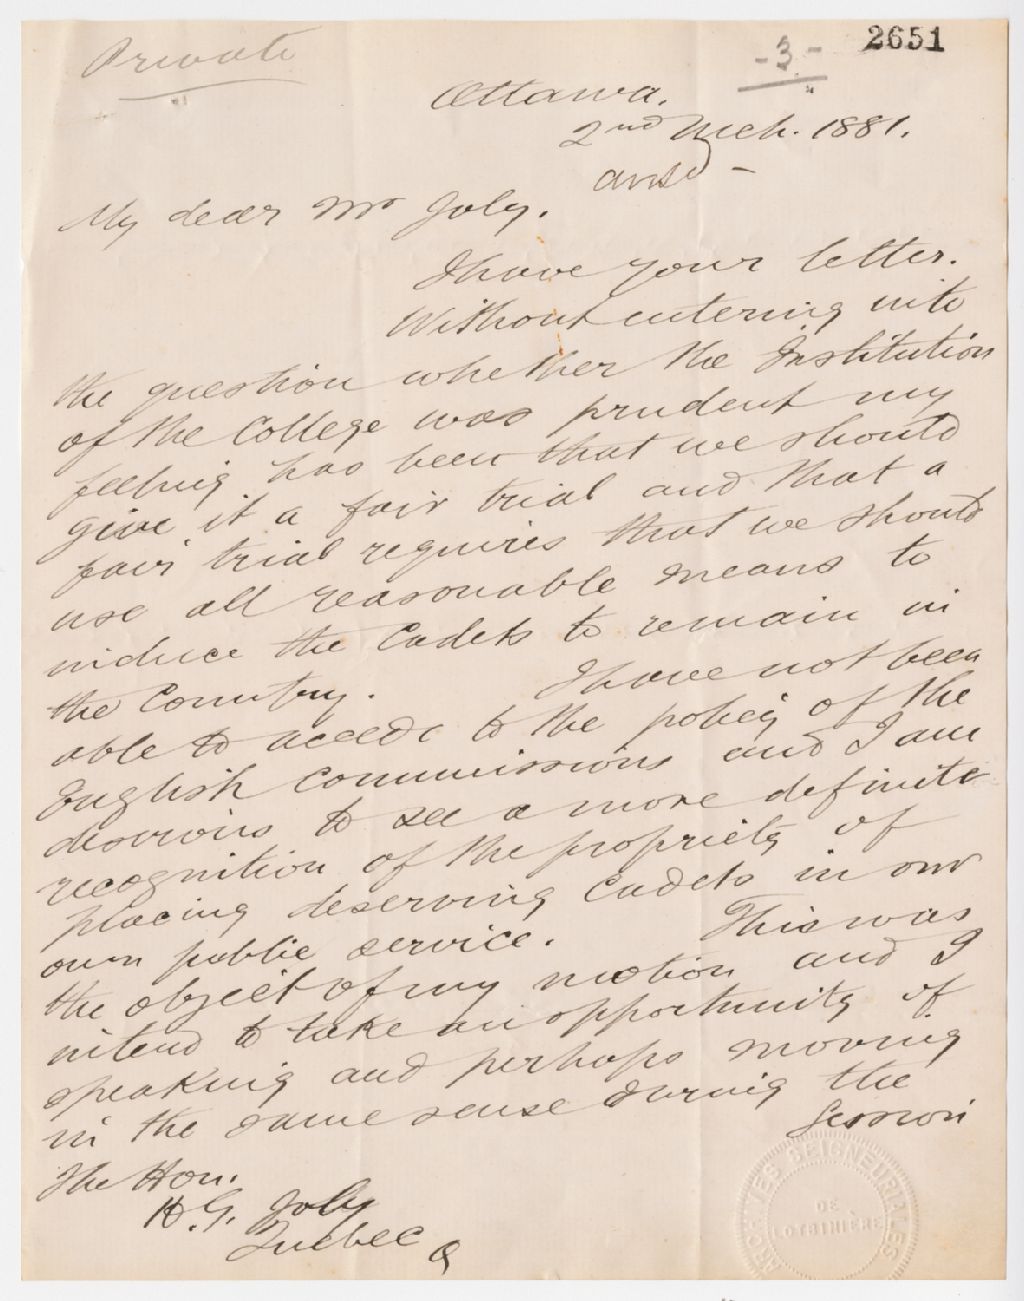 Private
- 3 -
2651
Ottawa.
2nd Mch. 1881.
ansd -
My dear Mr Joly.
I have your letter.
Without entering into
the question whether the Institution
of the College was prudent my
feeling has been that we should
give it a fair trial and that a
fair trial requires that we should
use all reasonable means to
induce the Cadets to remain in
the Country. I have not been
able to accede to the policy of the
English Commissions and I am
desirous to see a more definite
recognition of the propriety of
placing deserving Cadets in our
own public service. This was
the object of my motion and I
intend to take an opportunity of
speaking and perhaps moving
in the same sense during the
Session
The Hon.
H. G. Joly
Quebec Q
ARCHIVES SEIGNEURIALES
DE
LOTBINIÈRE